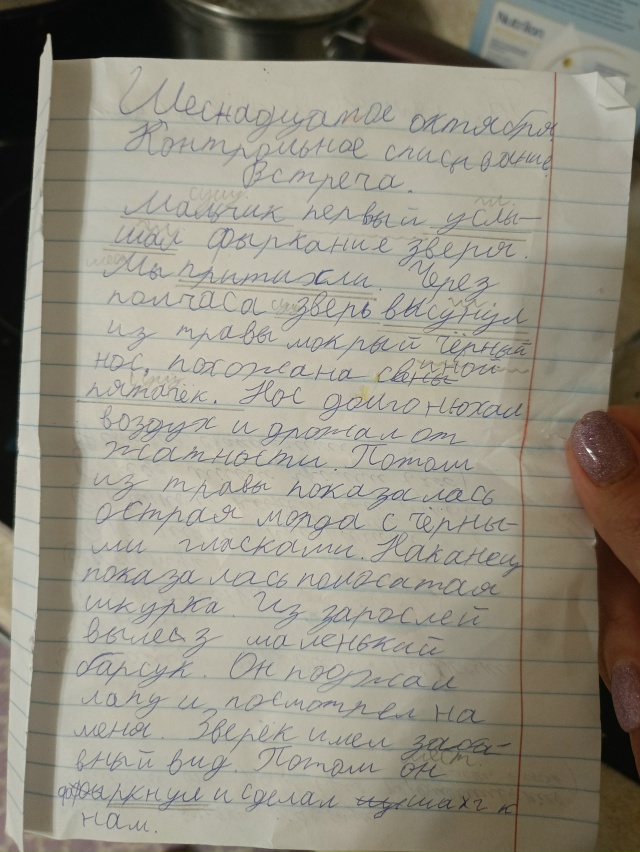 Nutrilon
Шеснадцатое октября.
Контрольное списывание.
Встреча.
сущ. гл.
Мальчик первый услы-
шал фыркание зверя.
Мы притихли. Через
полчаса зверь высунул
из травы мокрый чёрный
нос, похож на свиной
пятачек. Нос долго нюхал
воздух и дрожал от
жатности. Потом
из травы показалась
острая морда с чёрны-
ми гласками. Наканец
показалась полосатая
шкурка. Из зарослей
вылез маленький
барсук. Он поджал
лапу и посмотрел на
меня. Зверек имел заба-
вный вид. Потом он
фыркнул и сделал шаг к
нам.